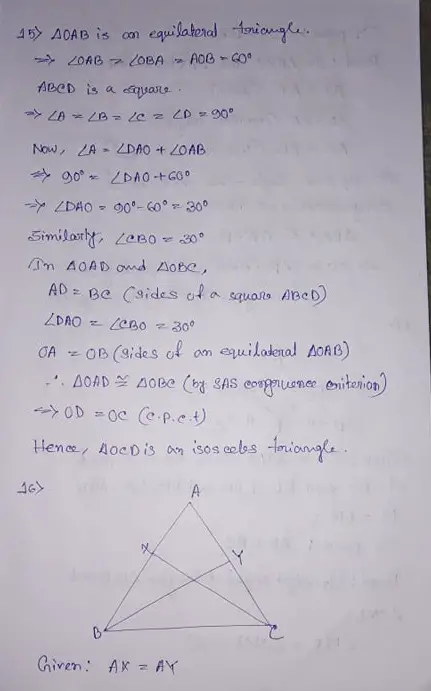 15) ΔOAB is an equilateral triangle.
⇒ ∠OAB = ∠OBA = AOB = 60°
ABCD is a square.
⇒ ∠A = ∠B = ∠C = ∠D = 90°
Now, ∠A = ∠DAO + ∠OAB
⇒ 90° = ∠DAO + 60°
⇒ ∠DAO = 90° - 60° = 30°
Similarly, ∠CBO = 30°
In ΔOAD and ΔOBC,
AD = BC (sides of a square ABCD)
∠DAO = ∠CBO = 30°
OA = OB (sides of an equilateral ΔOAB)
∴ ΔOAD ≅ ΔOBC (by SAS congruence criterion)
⇒ OD = OC (c.p.c.t)
Hence, ΔOCD is an isosceles triangle.
16)
A
X
Y
B
C
Given: AX = AY